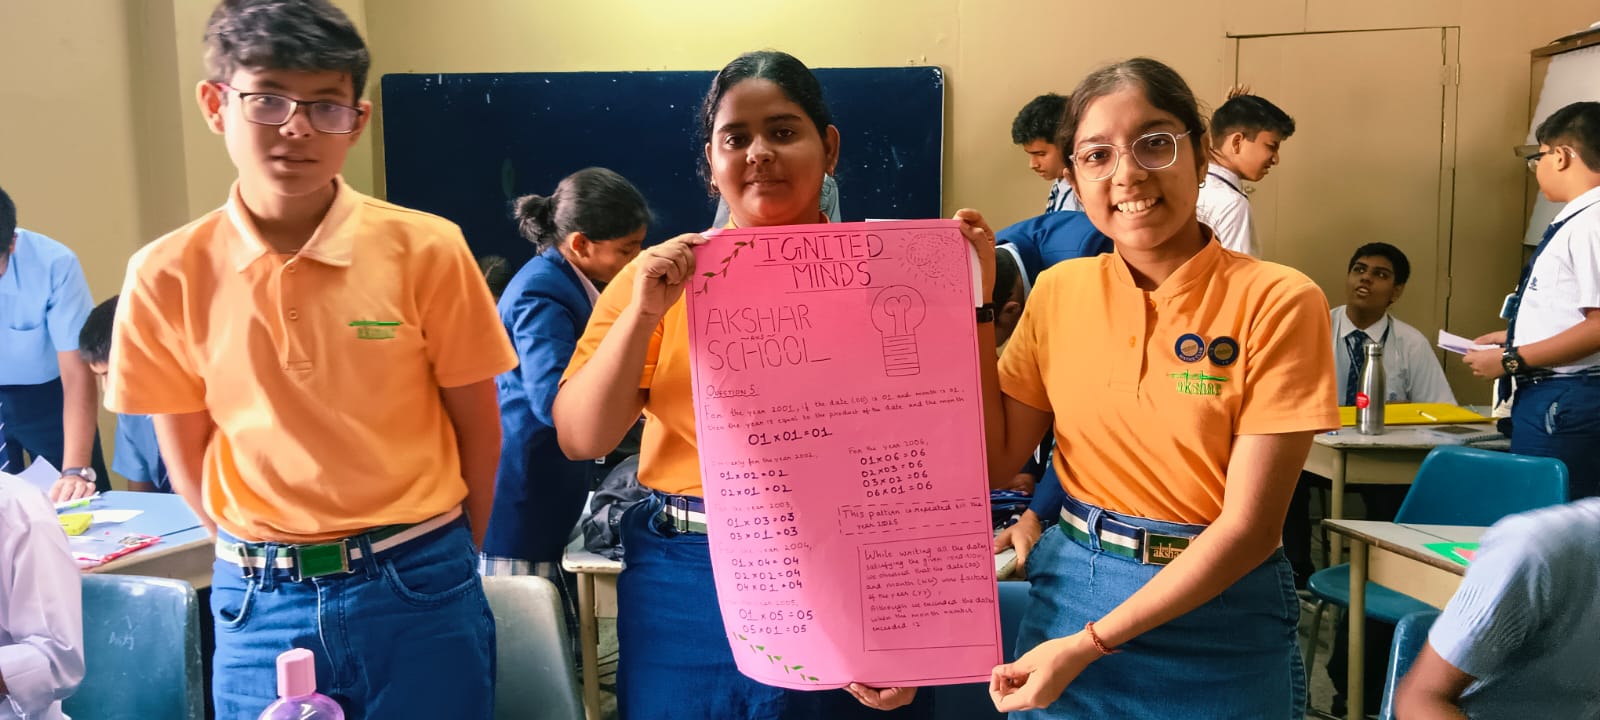 IGNITED
MINDS
AKSHAR
AND
SCHOOL
QUESTION 5
For the year 2001, if the date (DD) is 01 and month is 01,
then the year is equal to the product of the date and the month
01 × 01 = 01
Similarly for the year 2002,
01 × 02 = 02
02 × 01 = 02
For the year 2003,
01 × 03 = 03
03 × 01 = 03
For the year 2004,
01 × 04 = 04
02 × 02 = 04
04 × 01 = 04
For the year 2005,
01 × 05 = 05
05 × 01 = 05
For the year 2006,
01 × 06 = 06
02 × 03 = 06
03 × 02 = 06
06 × 01 = 06
This pattern is repeated till the
year 2025
While writing all the dates
satisfying the given condition,
we observed that the date (DD)
and month (MM) were factors
of the year (YY)
Although we excluded the dates
when the month number
exceeded 12
akshar
akshar
akshar